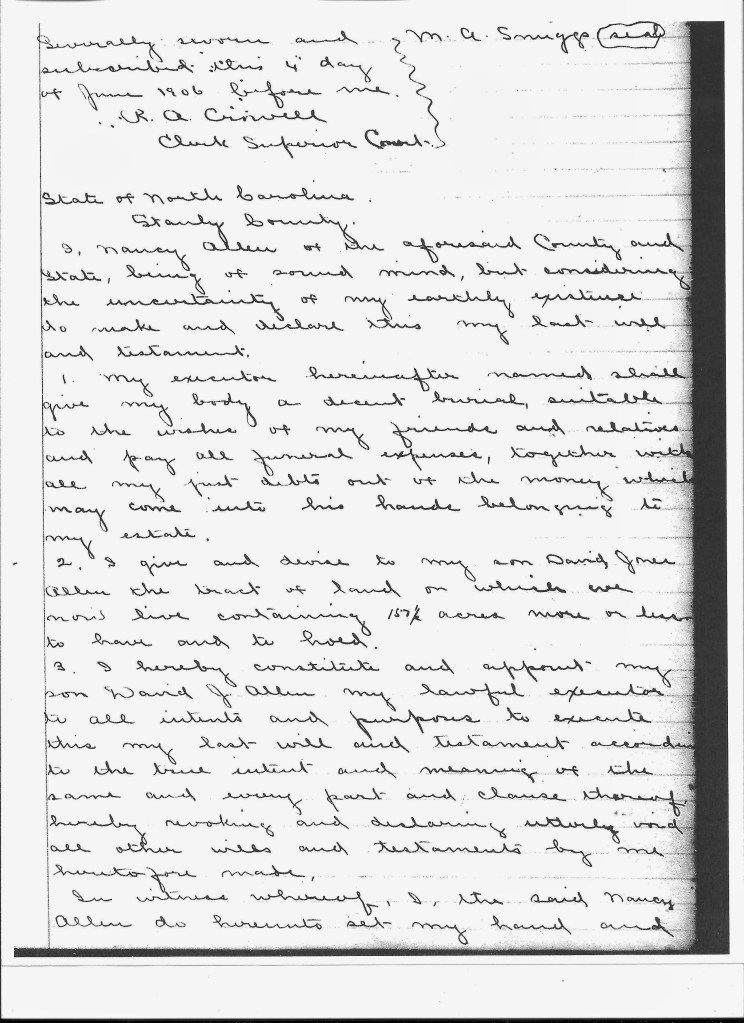 Severally sworn and M. A. Smuggs seal
subscribed this 4" day
of June 1906 before me.
R. A. Crowell
Clerk Superior Court.
State of North Carolina.
Stanly County.
I, Nancy Allen of the aforesaid County and
State, being of sound mind, but considering
the uncertainty of my earthly existence
do make and declare this my last will
and testament.
1. My executor hereinafter named shall
give my body a decent burial, suitable
to the wishes of my friends and relatives
and pay all funeral expenses, together with
all my just debts out of the money which
may come into his hands belonging to
my estate.
2. I give and devise to my son David Jones
Allen the tract of land on which we
now live containing 157½ acres more or less
to have and to hold.
3. I hereby constitute and appoint my
son David J. Allen my lawful executor
to all intents and purposes to execute
this my last will and testament accordin
to the true intent and meaning of the
same and every part and clause thereof,
hereby revoking and declaring utterly void
all other wills and testaments by me
heretofore made,
In witness whereof, I, the said Nancy
Allen do hereunto set my hand and